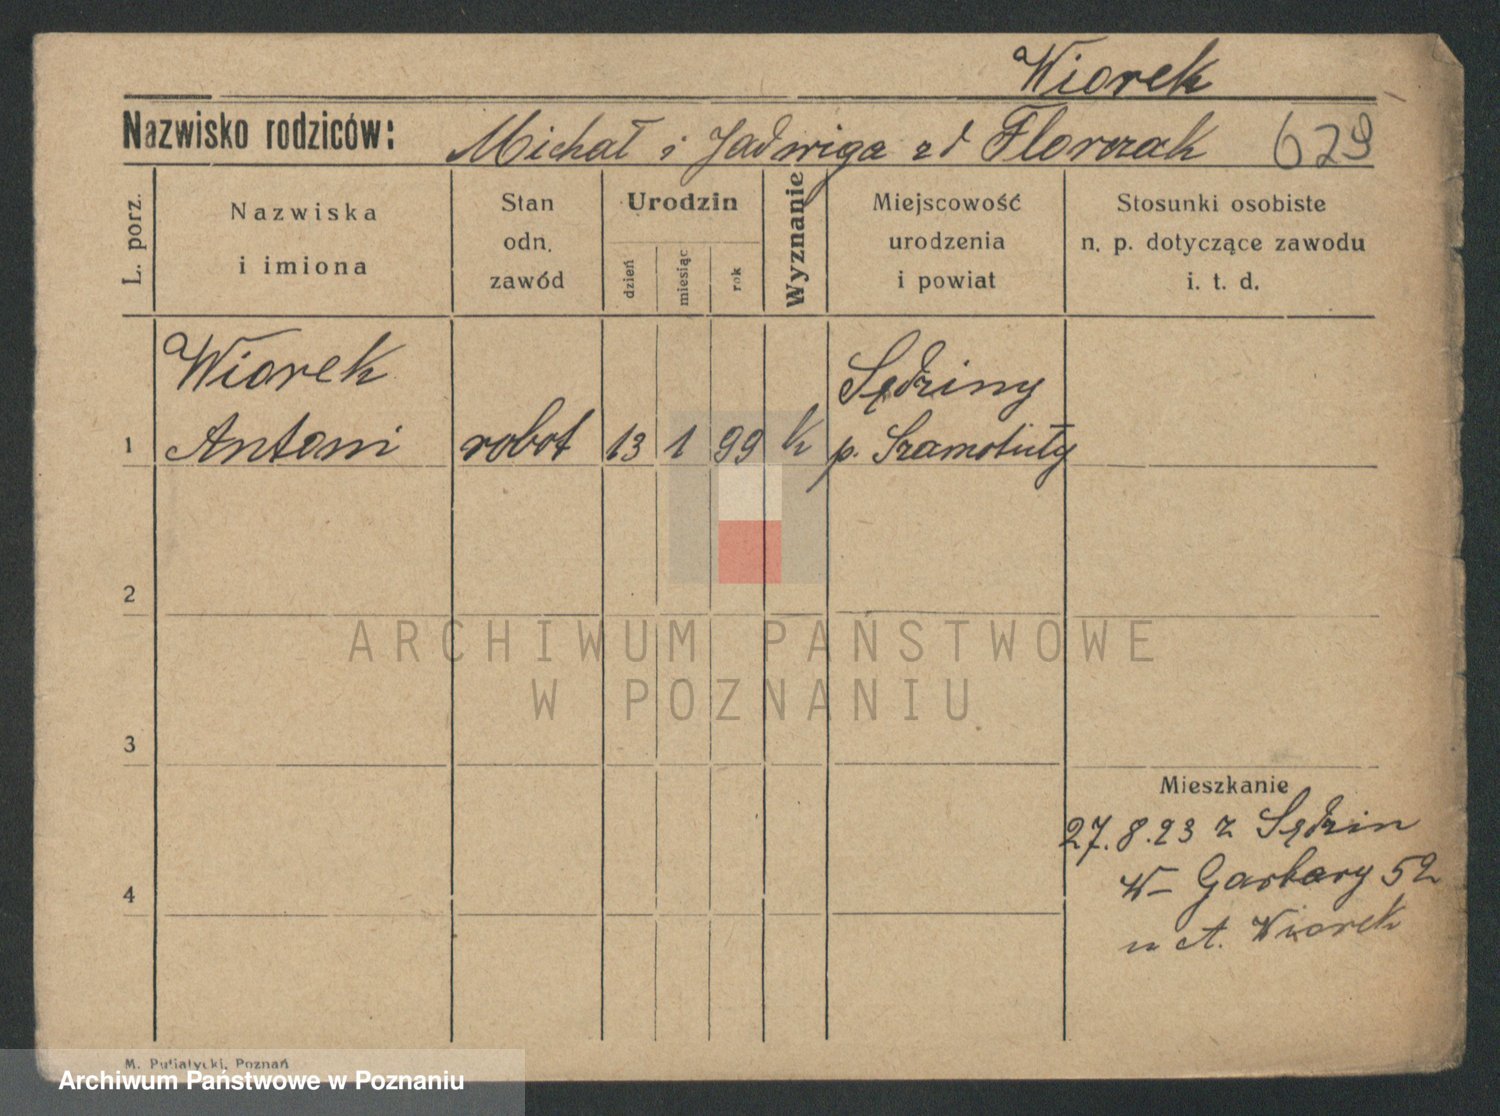 Wiorek
Nazwisko rodziców: Michał i Jadwiga zd Florczak 629
L. porz.
Nazwiska
i imiona
Stan
odn.
zawód
Urodzin
dzień
miesiąc
rok
Wyznanie
Miejscowość
urodzenia
i powiat
Stosunki osobiste
n. p. dotyczące zawodu
i. t. d.
Wiorek Sędziny
1 Antoni robot 13 1 99 k p. Szamotuły
2
ARCHIWUM PAŃSTWOWE
W POZNANIU
3
Mieszkanie
27.8.23 z Sędzin
W- Garbary 52
4
u A. Wiorek
M. Putiatycki, Poznań
Archiwum Państwowe w Poznaniu